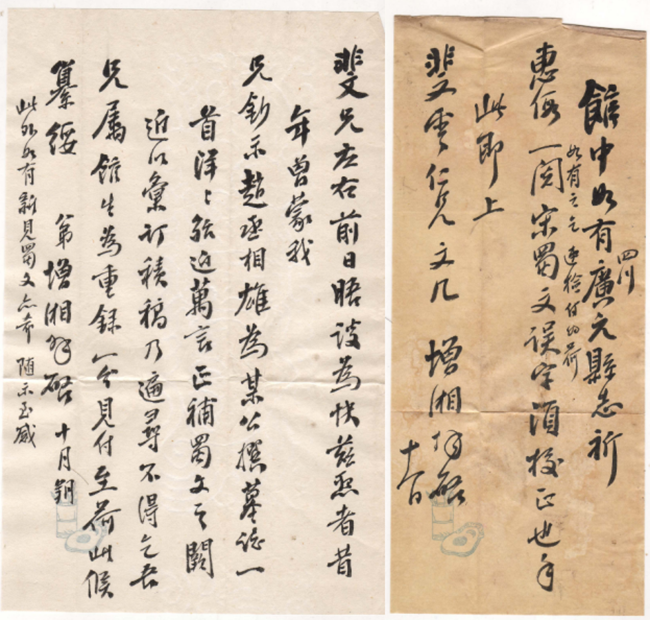 館中如有四川廣元縣志祈
如有之乞檢付為荷
惠假一閱宋蜀文誤字須校正也手
此即上
斐雲仁兄文几 增湘拜啟
十一日
斐兄左右前日晤談為快茲懇者昔
年曾蒙我
兄鈔示趙丞相雄為某公撰墓誌一
首洋〻殆近萬言正補蜀文之闕
近以彙訂積稿乃遍尋不得乞吾
兄屬館生為重錄一分見付至荷此候
纂綏 弟增湘拜啟 十月朔
此外如有新見蜀文亦希隨示至感